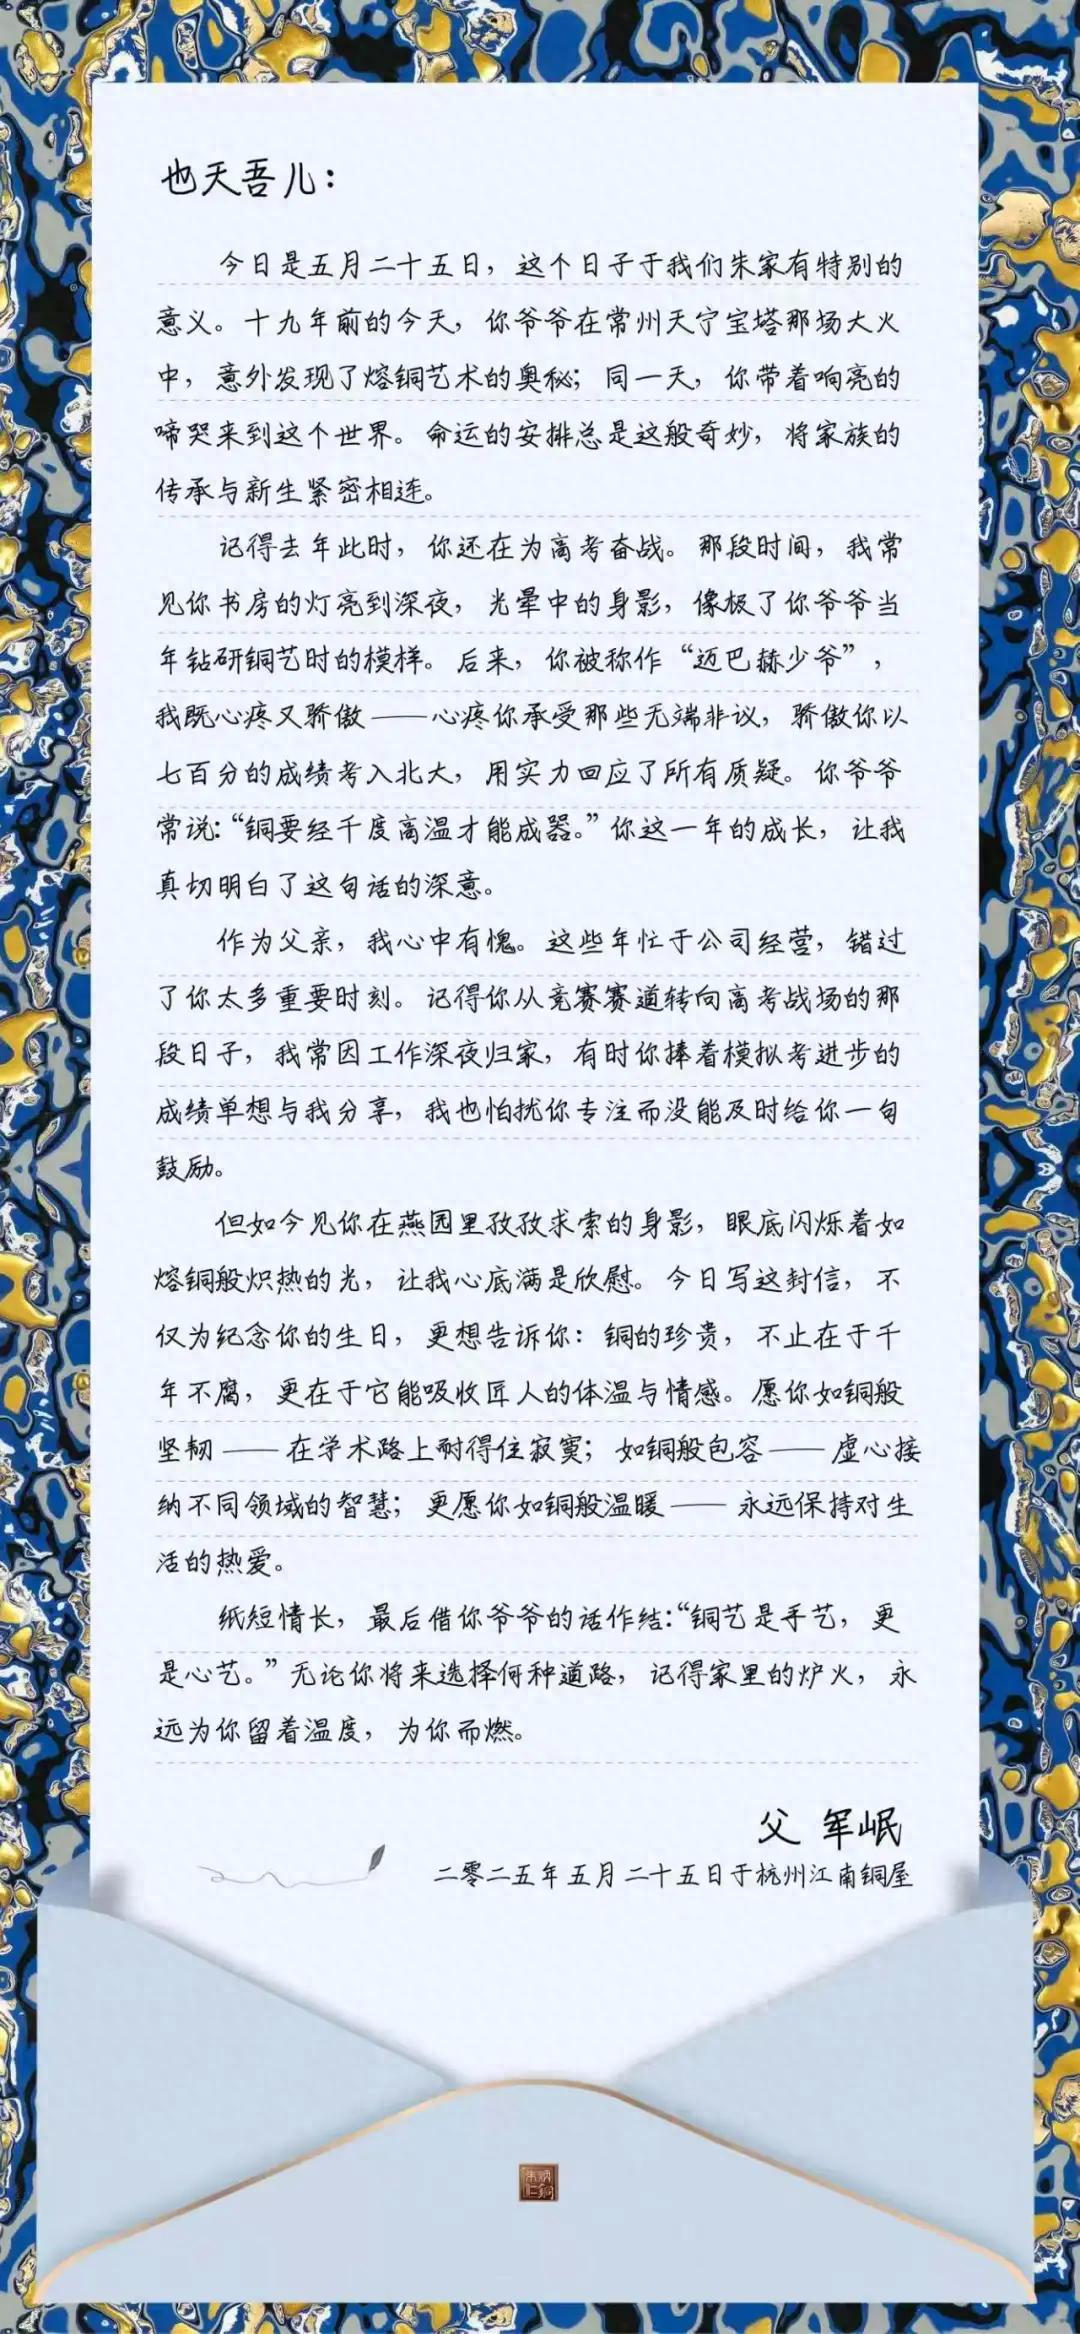 也天吾儿：
今日是五月二十五日，这个日子于我们朱家有特别的
意义。十九年前的今天，你爷爷在常州天宁宝塔那场大火
中，意外发现了熔铜艺术的奥秘；同一天，你带着响亮的
啼哭来到这个世界。命运的安排总是这般奇妙，将家族的
传承与新生紧密相连。
记得去年此时，你还在为高考奋战。那段时间，我常
见你书房的灯亮到深夜，光晕中的身影，像极了你爷爷当
年钻研铜艺时的模样。后来，你被称作“迈巴赫少爷”，
我既心疼又骄傲——心疼你承受那些无端非议，骄傲你以
七百分的成绩考入北大，用实力回应了所有质疑。你爷爷
常说：“铜要经千度高温才能成器。”你这一年的成长，让我
真切明白了这句话的深意。
作为父亲，我心中有愧。这些年忙于公司经营，错过
了你太多重要时刻。记得你从竞赛赛道转向高考战场的那
段日子，我常因工作深夜归家，有时你捧着模拟考进步的
成绩单想与我分享，我也怕扰你专注而没能及时给你一句
鼓励。
但如今见你在燕园里孜孜求索的身影，眼底闪烁着如
熔铜般炽热的光，让我心底满是欣慰。今日写这封信，不
仅为纪念你的生日，更想告诉你：铜的珍贵，不止在于千
年不腐，更在于它能吸收匠人的体温与情感。愿你如铜般
坚韧——在学术路上耐得住寂寞；如铜般包容——虚心接
纳不同领域的智慧；更愿你如铜般温暖——永远保持对生
活的热爱。
纸短情长，最后借你爷爷的话作结：“铜艺是手艺，更
是心艺。”无论你将来选择何种道路，记得家里的炉火，永
远为你留着温度，为你而燃。
父 军岷
二零二五年五月二十五日于杭州江南铜屋
朱炳仁铜